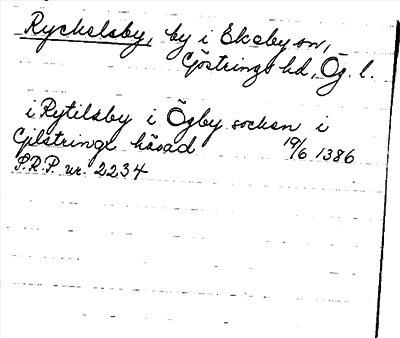 Ryckelsby, by i Ekeby sn,
Göstrings hd, Ög. l.
i Rytilsby i Ögby socken i
Gilstringe härad 19/6 1386
S.R.P. nr. 2234